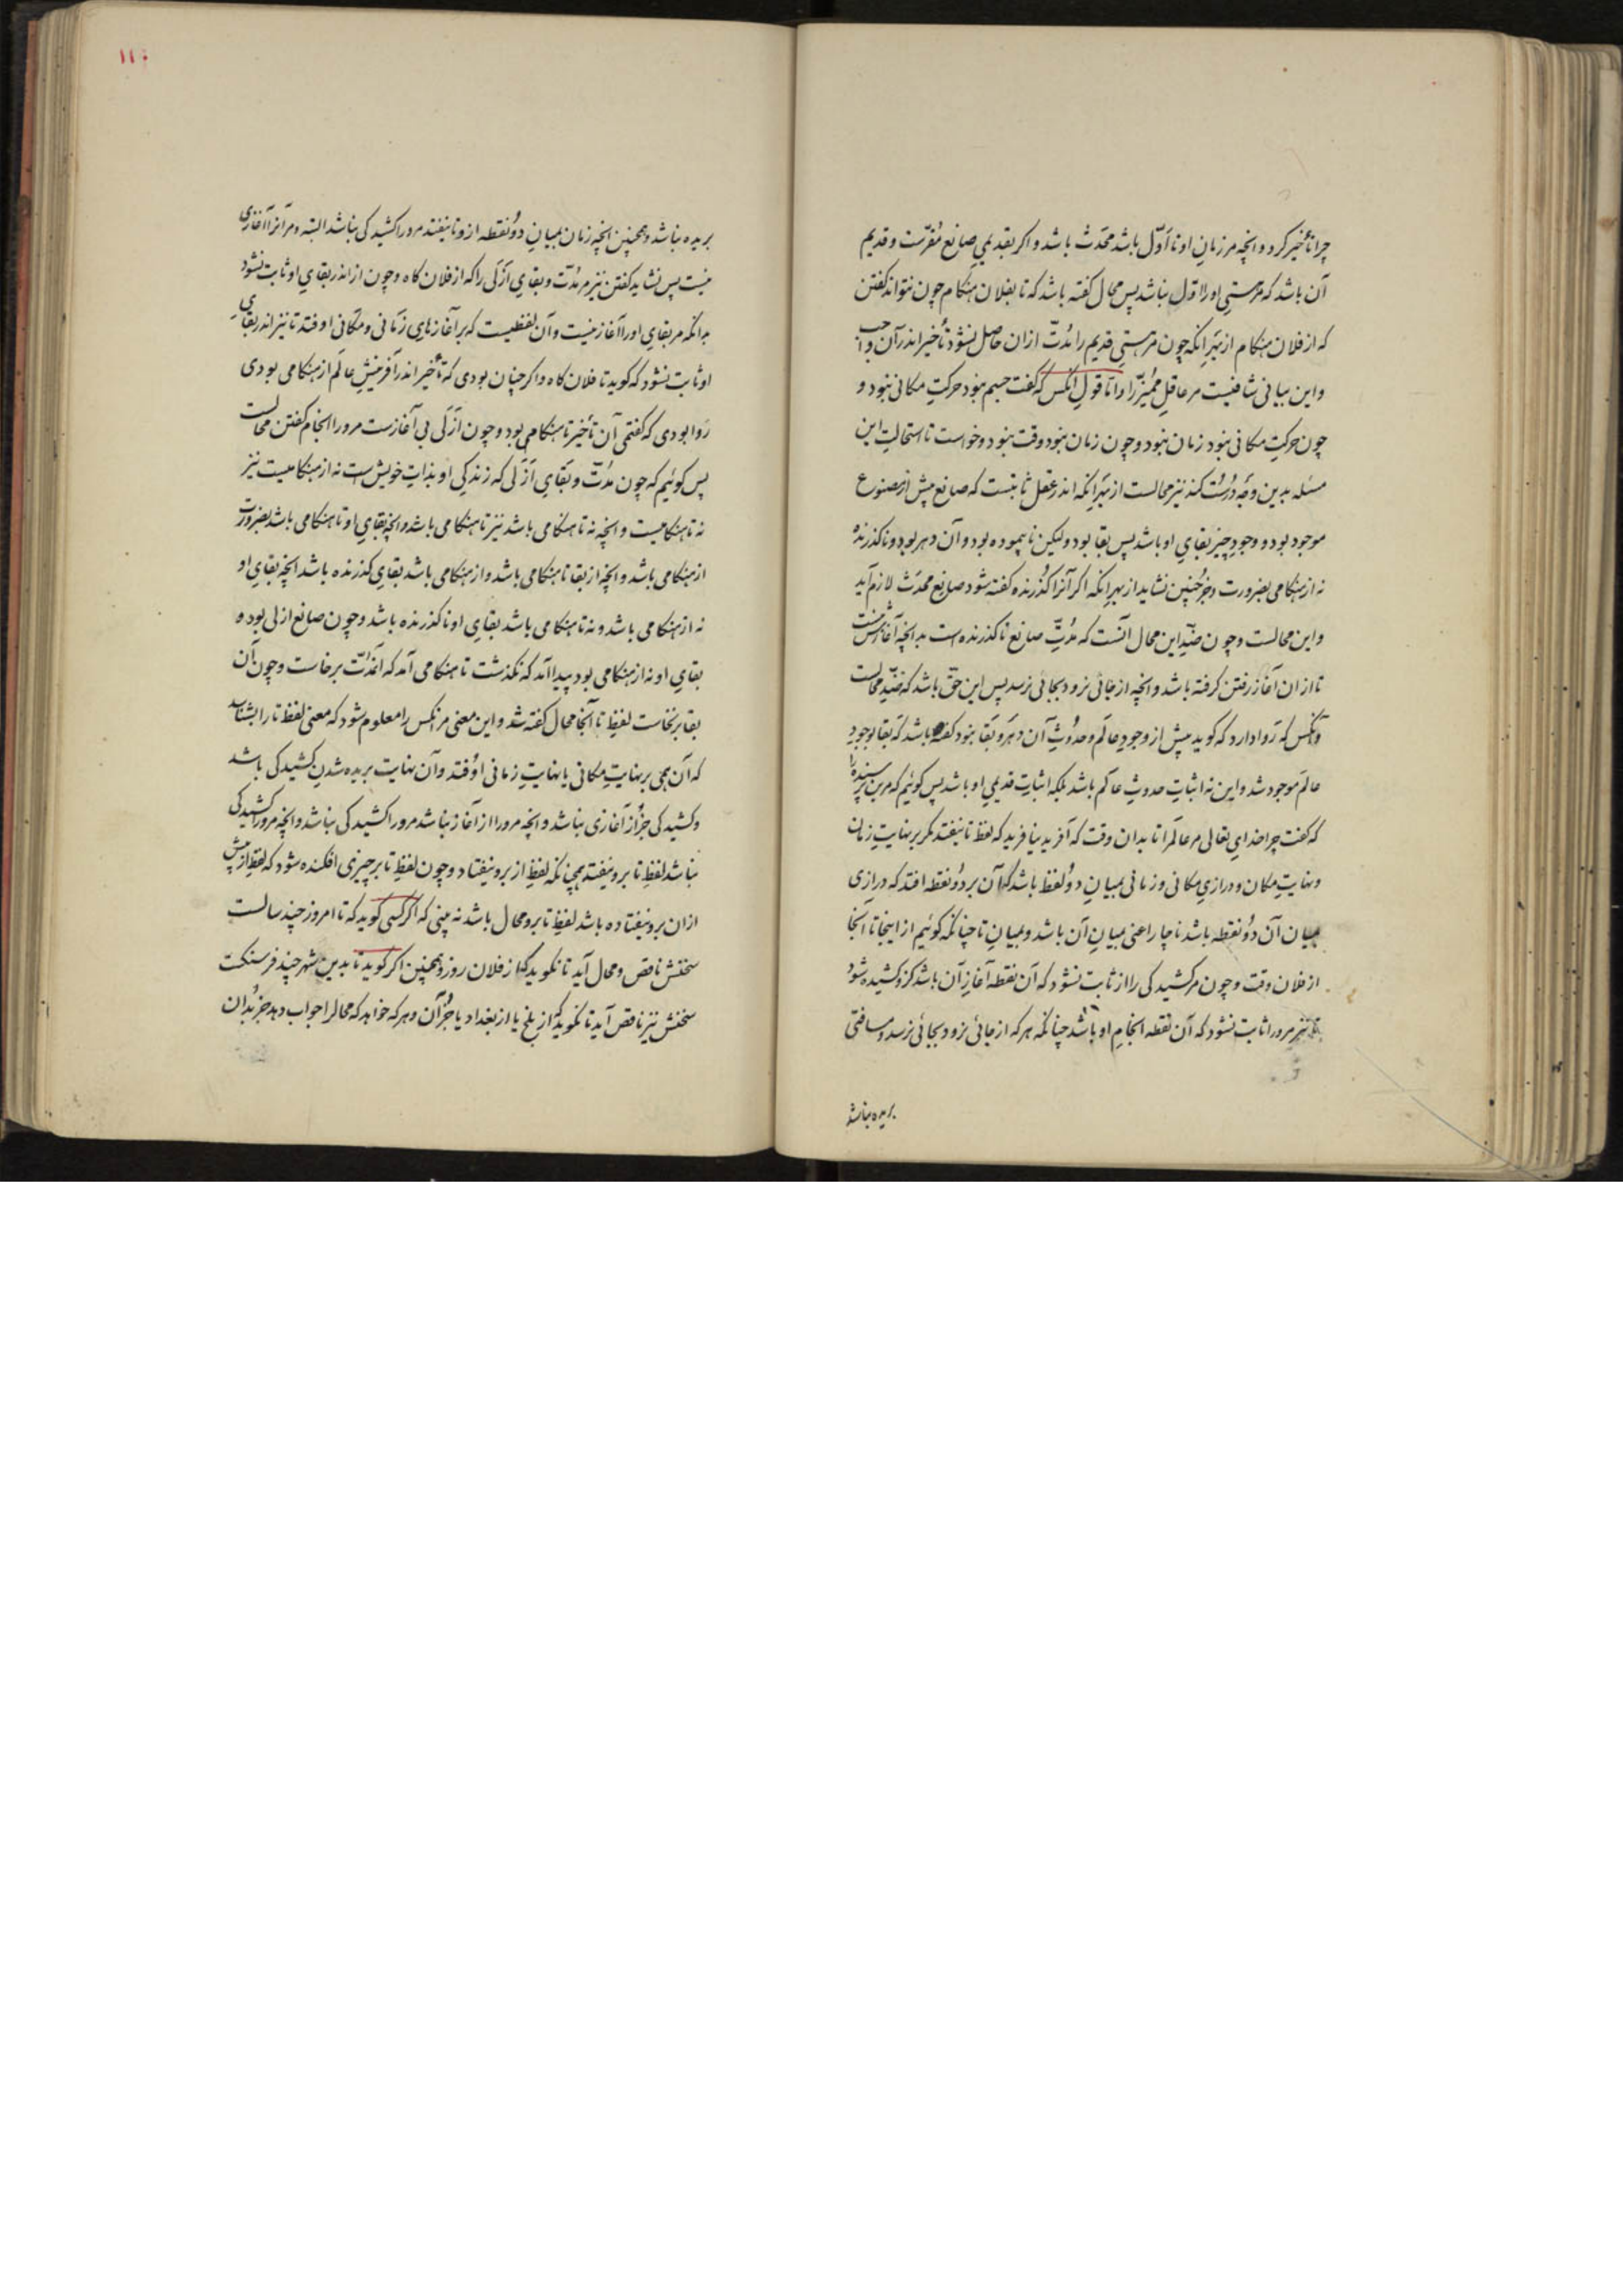 چرا تأخیر کرد و انچه مر زمان او تا اوّل باشد محدَث باشد و اکر بقدیمیِ صانع مُقرّست و قدیم
آن باشد که مر هستیِ او را اوّل نباشد پس محال کفته باشد که تا بفلان هنکام چون نتواند کفتن
که از فلان هنکام از بهر انکه چون مر هستیِ قدیم را مُدّت ازان حاصل نشود تأخیر اندر آن واجب
و این بیانی شافیست مر عاقلِ ممیّز را و امّا قولِ انکس که کفت جسم نبود حرکتِ مکانی نبود و
چون حرکتِ مکانی نبود زمان نبود و چون زمان نبود وقت نبود و خواست تا استحالتِ این
مسئله بدین وجه درست کند نیز محالست از بهرِ انکه اندر عقل ثابتست که صانع پیش از مصنوع
موجود بود و وجودِ چیز بقایِ او باشد پس بقا بود ولیکن ناپیموده بود و آن دهر بود و ناکذرنده
نه از هنکامی بضرورت و جز چنین نشاید از بهرِ انکه اکر آنرا کذرنده کفته شود صانع محدَث لازم آید
و این محالست و چون ضدِّ این محال آنست که مدّتِ صانع ناکذرنده است بدانچه آغازش نیست
تا از ان آغاز رفتن کرفته باشد و انچه از جائی نرود بجائی نرسد پس این حقّ باشد که ضدِّ محالست
و آنکس که روا دارد که کوید پیش از وجودِ عالم و حدوثِ آن دهر و بقا نبود کفته باشد که بقا بوجودِ
عالم موجود شد و این نه اثباتِ حدوثِ عالم باشد بلکه اثباتِ قدیمیِ او باشد پس کوئیم که مرین پرسنده را
که کفت چرا خدایِ تعالی مر عالم را تا بدان وقت که آفرید نیافرید که لفظِ تا نیفتد مکر بر نهایتِ زمان
و نهایتِ مکان و درازیِ مکانی و زمانی بمیانِ دو لفظ باشد که آن بر دو نقطه افتد که درازی
بمیان آن دو نقطه باشد ناچار اعنی بمیانِ آن باشد و بمیانِ تا چنانکه کوئیم از اینجا تا آنجا
از فلان وقت و چون مر کشیدکی را از ثابت نشود که آن نقطه آغازِ آن باشد کزو کشیده شود
تا نیز مرورا ثابت نشود که آن نقطه انجامِ او باشد چنانکه هر که از جائی نرود بجائی نرسد و مسافتی
بریده نباشد
١١٠
بریده نباشد و همچنین انچه زمان بمیانِ دو نقطه ازو تا نیفتد مرورا کشیدکی نباشد البته و مر آنرا آغازی
نیست پس نشاید کفتن نیز مر مُدّت و بقایِ ازلی را که از فلان کاه و چون از اندر بقایِ او ثابت نشود
بدانکه مر بقایِ او را آغاز نیست و آن لفظیست که بر آغازهایِ زمانی و مکانی اوفتد تا نیز اندر بقایِ
او ثابت نشود که کوید تا فلان کاه و اکر چنان بودی که تأخیر اندر آفرینشِ عالم از هنکامی بودی
روا بودی که کفتمی آن تأخیر تا هنکامی بود و چون ازلی بی آغازست مرورا انجام کفتن محالست
پس کوئیم که چون مدّت و بقایِ ازلی که زندکیِ او بذاتِ خویش است نه از هنکامیست نیز
نه تا هنکامیست و انچه نه تا هنکامی باشد نیز تا هنکامی باشد و انچه بقایِ او تا هنکامی باشد بضرورت
از هنکامی باشد و انچه از بقا تا هنکامی باشد و از هنکامی باشد بقایِ کذرنده باشد انچه بقایِ او
نه از هنکامی باشد و نه تا هنکامی باشد بقایِ او ناکذرنده باشد و چون صانع ازلی بود و
بقایِ او نه از هنکامی بود پیدا آمد که نکذشت تا هنکامی آمد که آنمدّت برخاست و چون آن
بقا برنخاست لفظِ تا آنجا محال کفته شد و این معنی مر انکس را معلوم شود که معنیِ لفظِ تا را بشناسد
که آن همی بر نهایتِ مکانی یا نهایتِ زمانی اوفتد و آن نهایت بریده شدنِ کشیدکی باشد
و کشیدکی جز از آغازی نباشد و انچه مرورا از آغاز نباشد مرورا کشیدکی نباشد و انچه مرورا کشیدکی
نباشد لفظِ تا برو نیفتد همچنانکه لفظِ از برو نیفتاد و چون لفظِ تا بر چیزی افکنده شود که لفظِ از پیش
ازان برو نیفتاده باشد لفظِ تا برو محال باشد نه بینی که اکر کسی کوید که تا امروز چند سالست
سخنش ناقص و محال آید تا نکوید که از فلان روز و همچنین اکر کوید تا بدین شهر چند فرسنکست
سخنش نیز ناقص آید تا نکوید که از بلخ یا از بغداد یا جز آن و هر که خواهد که محالرا جواب دهد جز بدان